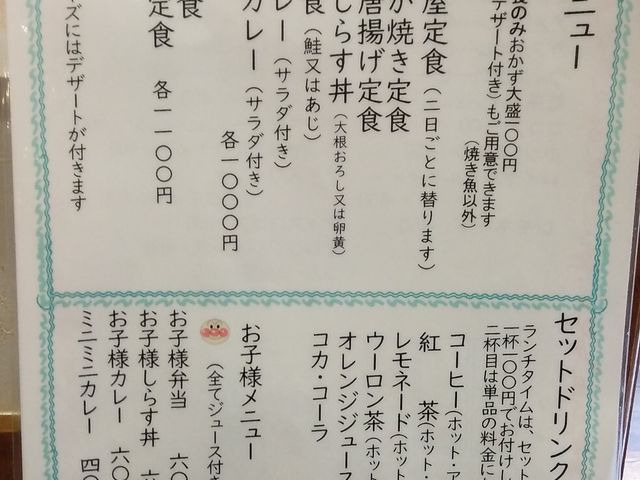 ニュー
食のみおかず大盛一〇〇円
デザート付き)もご用意できます
(焼き魚以外)
屋定食(二日ごとに替ります)
が焼き定食
唐揚げ定食
しらす丼(大根おろし又は卵黄)
食(鮭又はあじ)
レー(サラダ付き)
カレー(サラダ付き)
各一〇〇〇円
食
定食
各一一〇〇円
ズにはデザートが付きます
セットドリンク
ランチタイムは、セット
一杯一〇〇円でお付けし
二杯目は単品の料金に
コーヒー(ホット・ア
紅茶(ホット・
レモネード(ホット
ウーロン茶(ホット
オレンジジュース
コカ・コーラ
お子様メニュー
(全てジュース付き
お子様弁当 六〇
お子様しらす丼 六
お子様カレー 六〇
ミニミニカレー 四〇